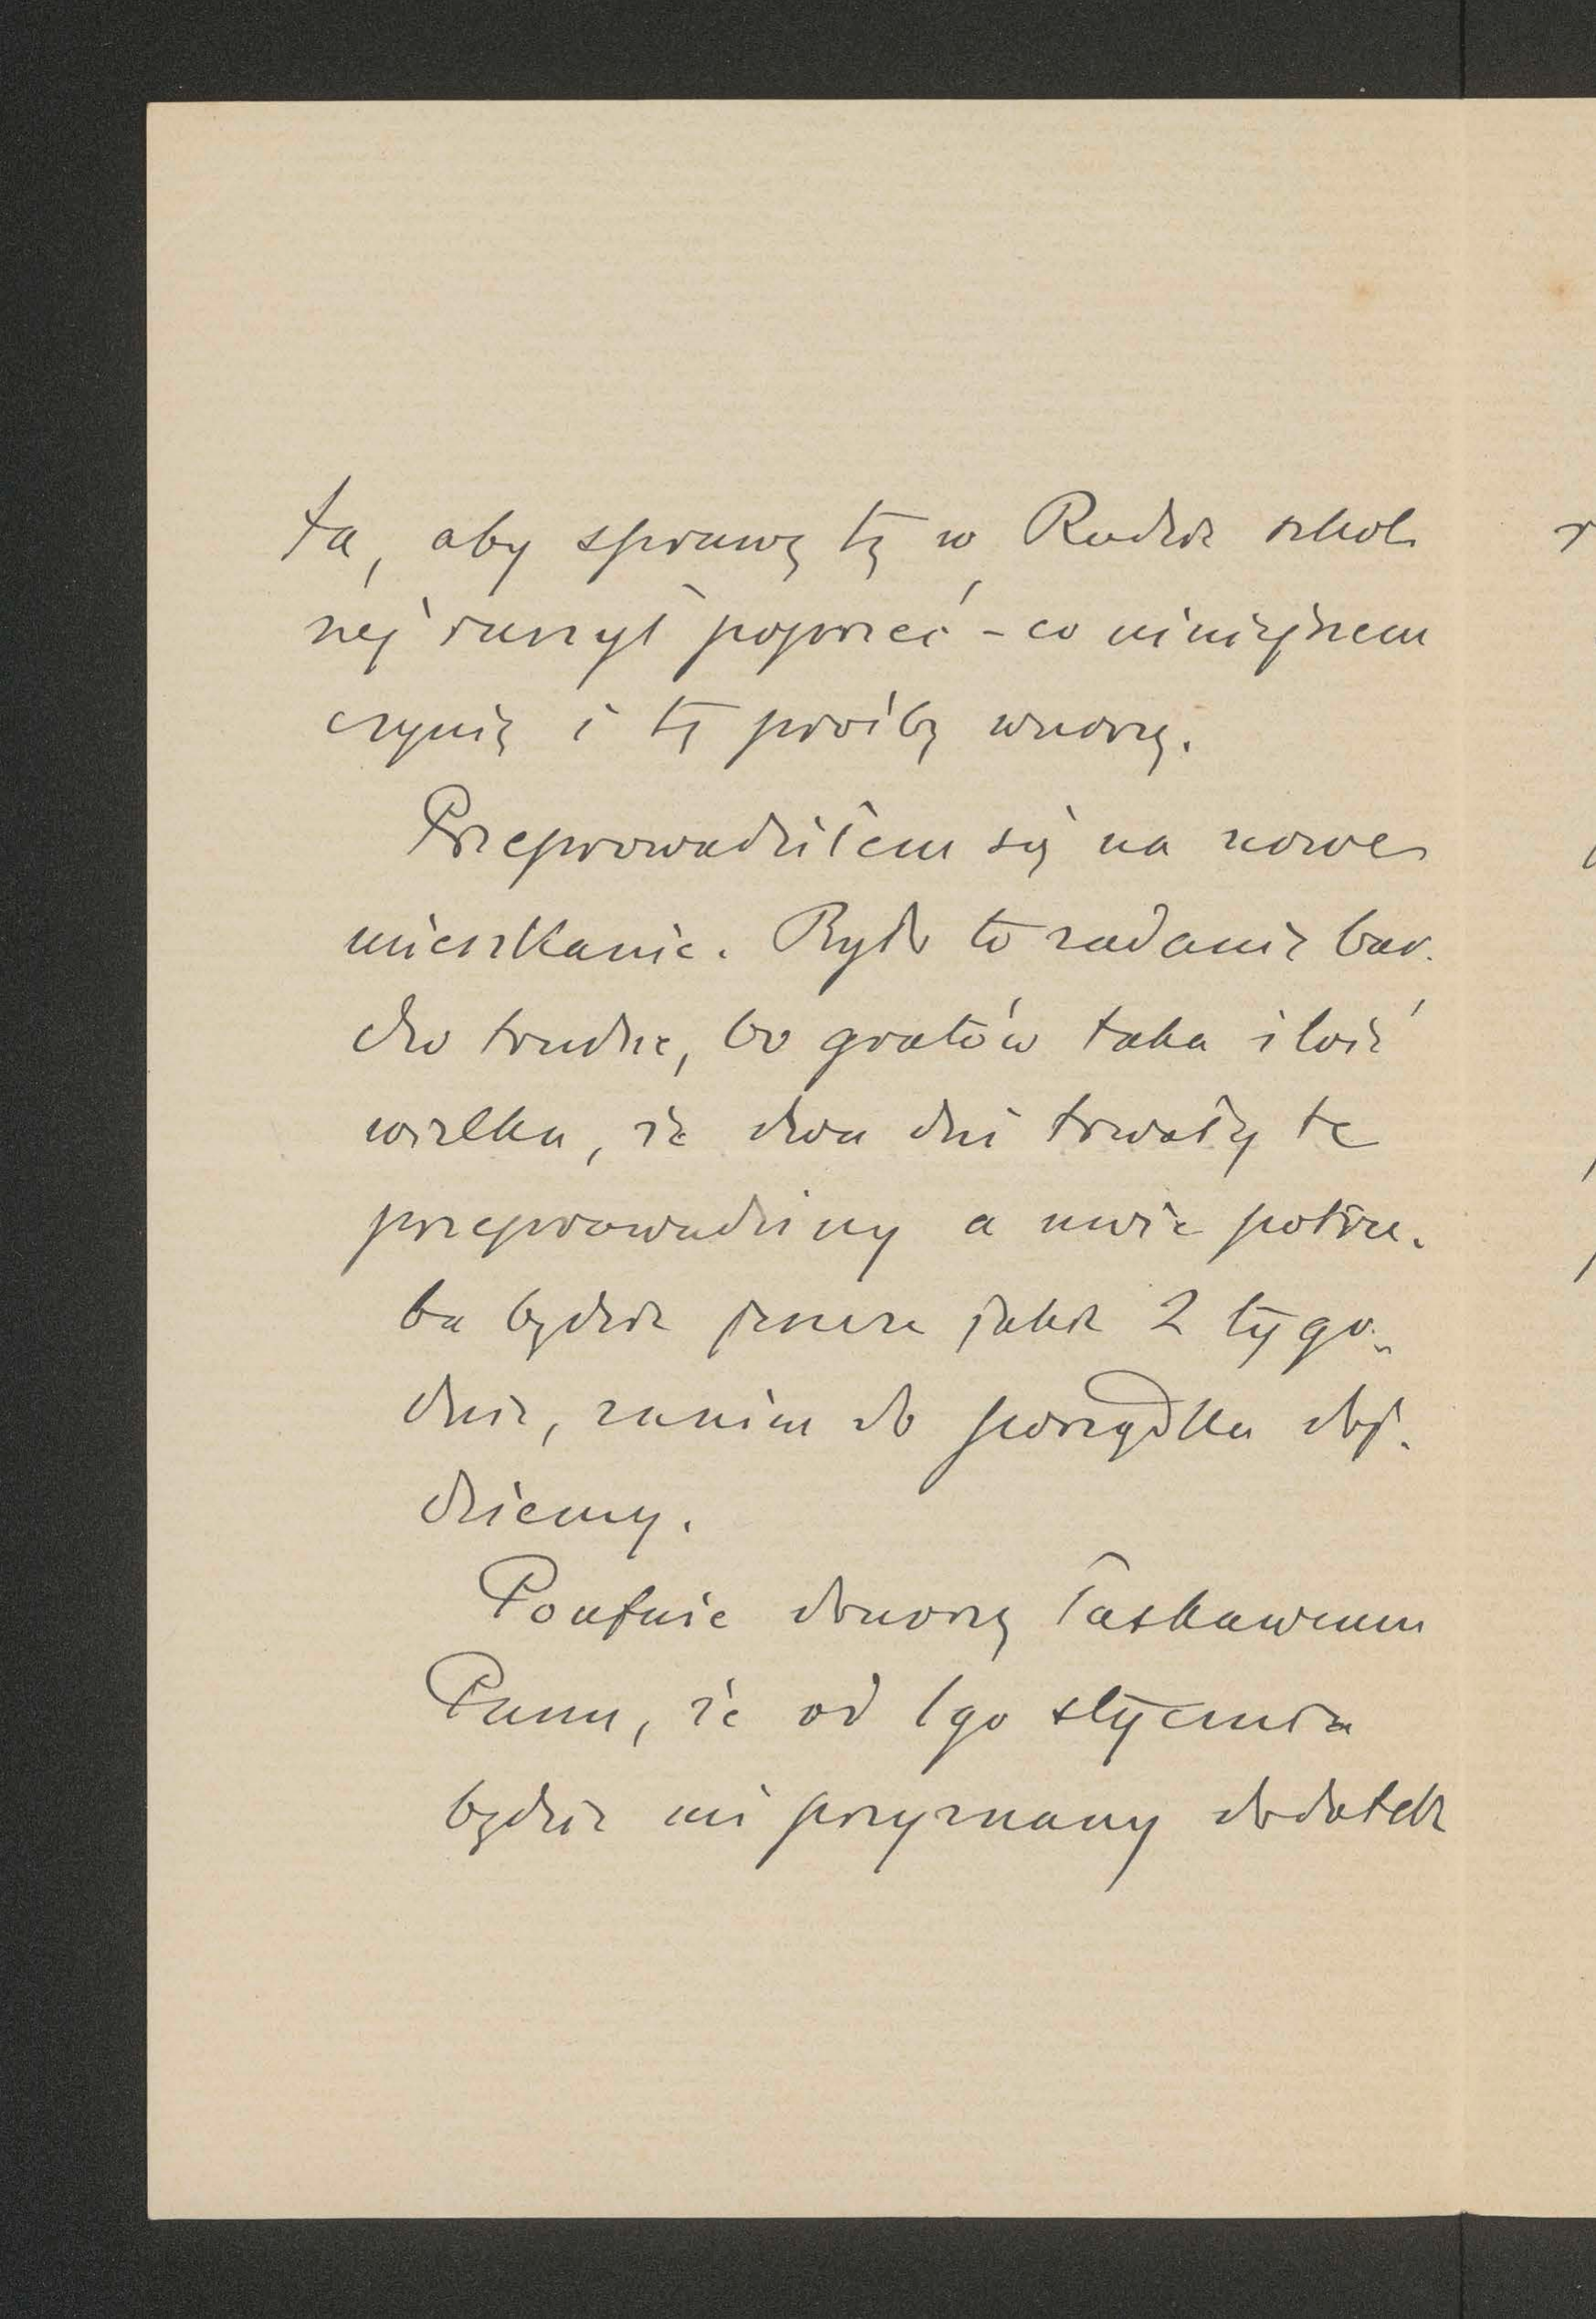 ta, aby sprawę tę w Radzie szkol
nej raczył poprzeć – co niniejszem
czynię i tę prośbę wnoszę.
Przeprowadziłem się na nowe
mieszkanie. Było to zadanie bar.
dzo trudne, bo gratów taka ilość
wielka, że dwa dni trwały te
przeprowadziny a nwże potrze.
ba będzie jeszcze jakie 2 tygo„
dnie, zanim do porządku doj.
dziemy.
Poufnie donoszę łaskawemu
Panu, że od 1go stycznia
będzie mi przyznany dodatek